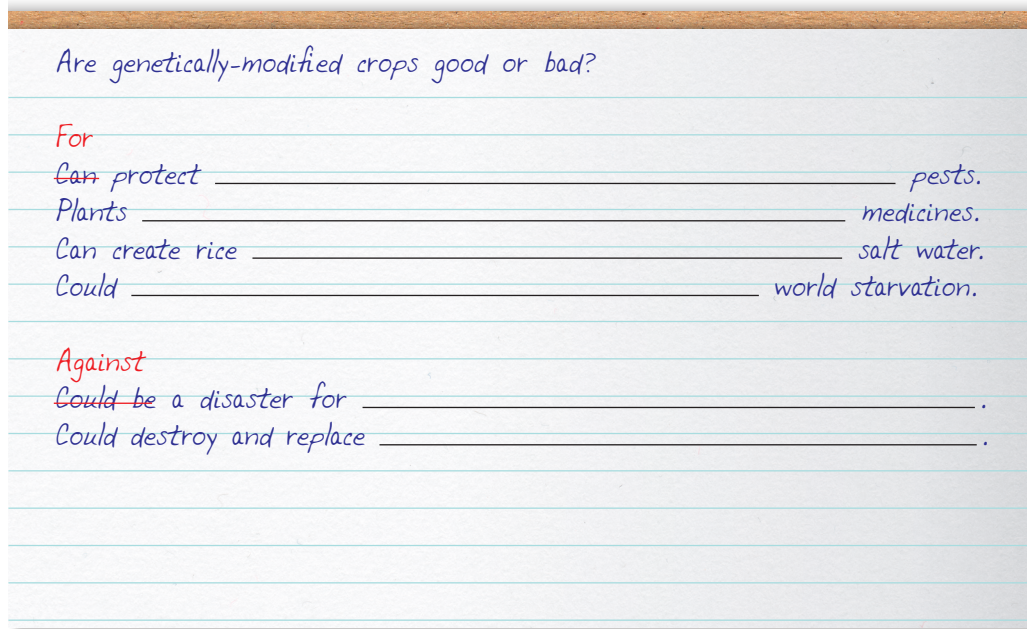 Are genetically-modified crops good or bad?
For
Can protect ______ pests.
Plants ______ medicines.
Can create rice ______ salt water.
Could ______ world starvation.
Against
Could be a disaster for ______.
Could destroy and replace ______.